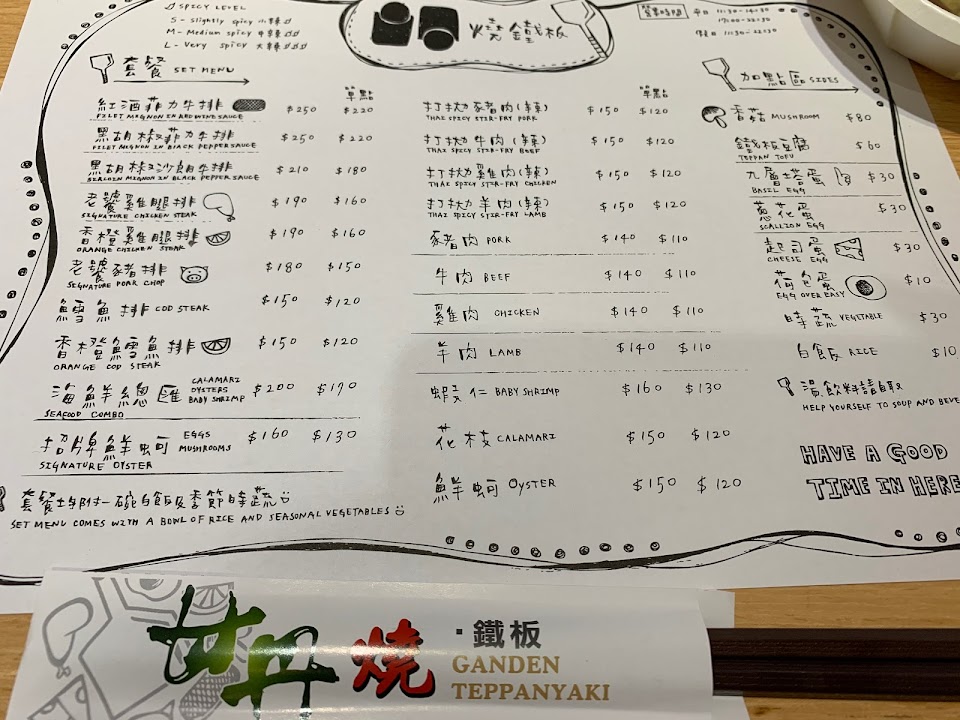 SPICY LEVEL
S - Slightly spicy 小辣
M - Medium spicy 中辣
L - Very spicy 大辣
燒鐵板
營業時間 平日 11:30-14:30
17:00-22:30
假日 11:30-22:30
套餐 SET MENU
單點
紅酒菲力牛排 $250 $220
FILET MIGNON IN RED WINE SAUCE
黑胡椒菲力牛排 $250 $220
FILET MIGNON IN BLACK PEPPER SAUCE
黑胡椒沙朗牛排 $210 $180
SIRLOIN MIGNON IN BLACK PEPPER SAUCE
老饕雞腿排 $190 $160
SIGNATURE CHICKEN STEAK
香橙雞腿排 $190 $160
ORANGE CHICKEN STEAK
老饕豬排 $180 $150
SIGNATURE PORK CHOP
鱈魚排 COD STEAK $150 $120
香橙鱈魚排 $150 $120
ORANGE COD STEAK
海鮮總匯 CALAMARI OYSTERS BABY SHRIMP $200 $170
SEAFOOD COMBO
招牌鮮蚵 EGGS MUSHROOMS $160 $130
SIGNATURE OYSTER
套餐均附一碗白飯及季節時蔬
SET MENU COMES WITH A BOWL OF RICE AND SEASONAL VEGETABLES
單點
打拋豬肉(辣) $150 $120
THAI SPICY STIR-FRY PORK
打拋牛肉(辣) $150 $120
THAI SPICY STIR-FRY BEEF
打拋雞肉(辣) $150 $120
THAI SPICY STIR-FRY CHICKEN
打拋羊肉(辣) $150 $120
THAI SPICY STIR-FRY LAMB
豬肉 PORK $140 $110
牛肉 BEEF $140 $110
雞肉 CHICKEN $140 $110
羊肉 LAMB $140 $110
蝦仁 BABY SHRIMP $160 $130
花枝 CALAMARI $150 $120
鮮蚵 OYSTER $150 $120
加點區 SIDES
香菇 MUSHROOM $80
鐵板豆腐 $60
TEPPAN TOFU
九層塔蛋 $30
BASIL EGG
蔥花蛋 $30
SCALLION EGG
起司蛋 $30
CHEESE EGG
荷包蛋 $10
EGG OVER EASY
時蔬 VEGETABLE $30
白飯 RICE $10
湯飲料請自取
HELP YOURSELF TO SOUP AND BEVE
HAVE A GOOD
TIME IN HERE
甘丹燒·鐵板
GANDEN
TEPPANYAKI